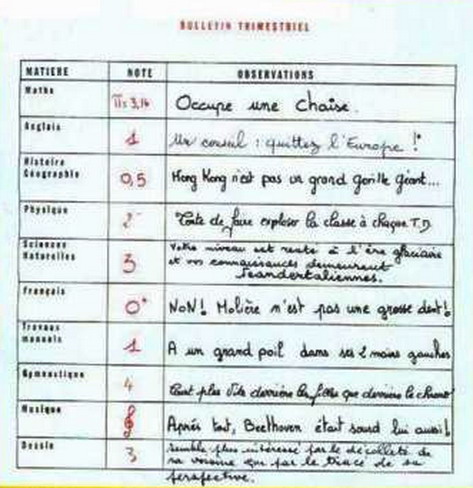 BULLETIN TRIMESTRIEL
MATIERE NOTE OBSERVATIONS
Maths π=3,14 Occupe une chaise.
Anglais 1 Un conseil : quittez l'Europe !
Histoire
Géographie 0,5 Hong Kong n'est pas un grand gorille géant...
Physique 2 Tente de faire exploser la classe à chaque T.D.
Sciences
Naturelles 3 Votre niveau est resté à l'ère glaciaire
et vos connaissances demeurent
Neandertaliennes.
Français 0+ NON! Molière n'est pas une grosse dent!
Travaux
manuels 1 A un grand poil dans ses 2 mains gauches
Gymnastique 4 Court plus vite derrière les filles que derrière le chrono
Musique Après tout, Beethoven était sourd lui aussi!
Dessin 3 Semble plus intéressé par le décolleté de
sa voisine que par le tracé de sa
perspective.